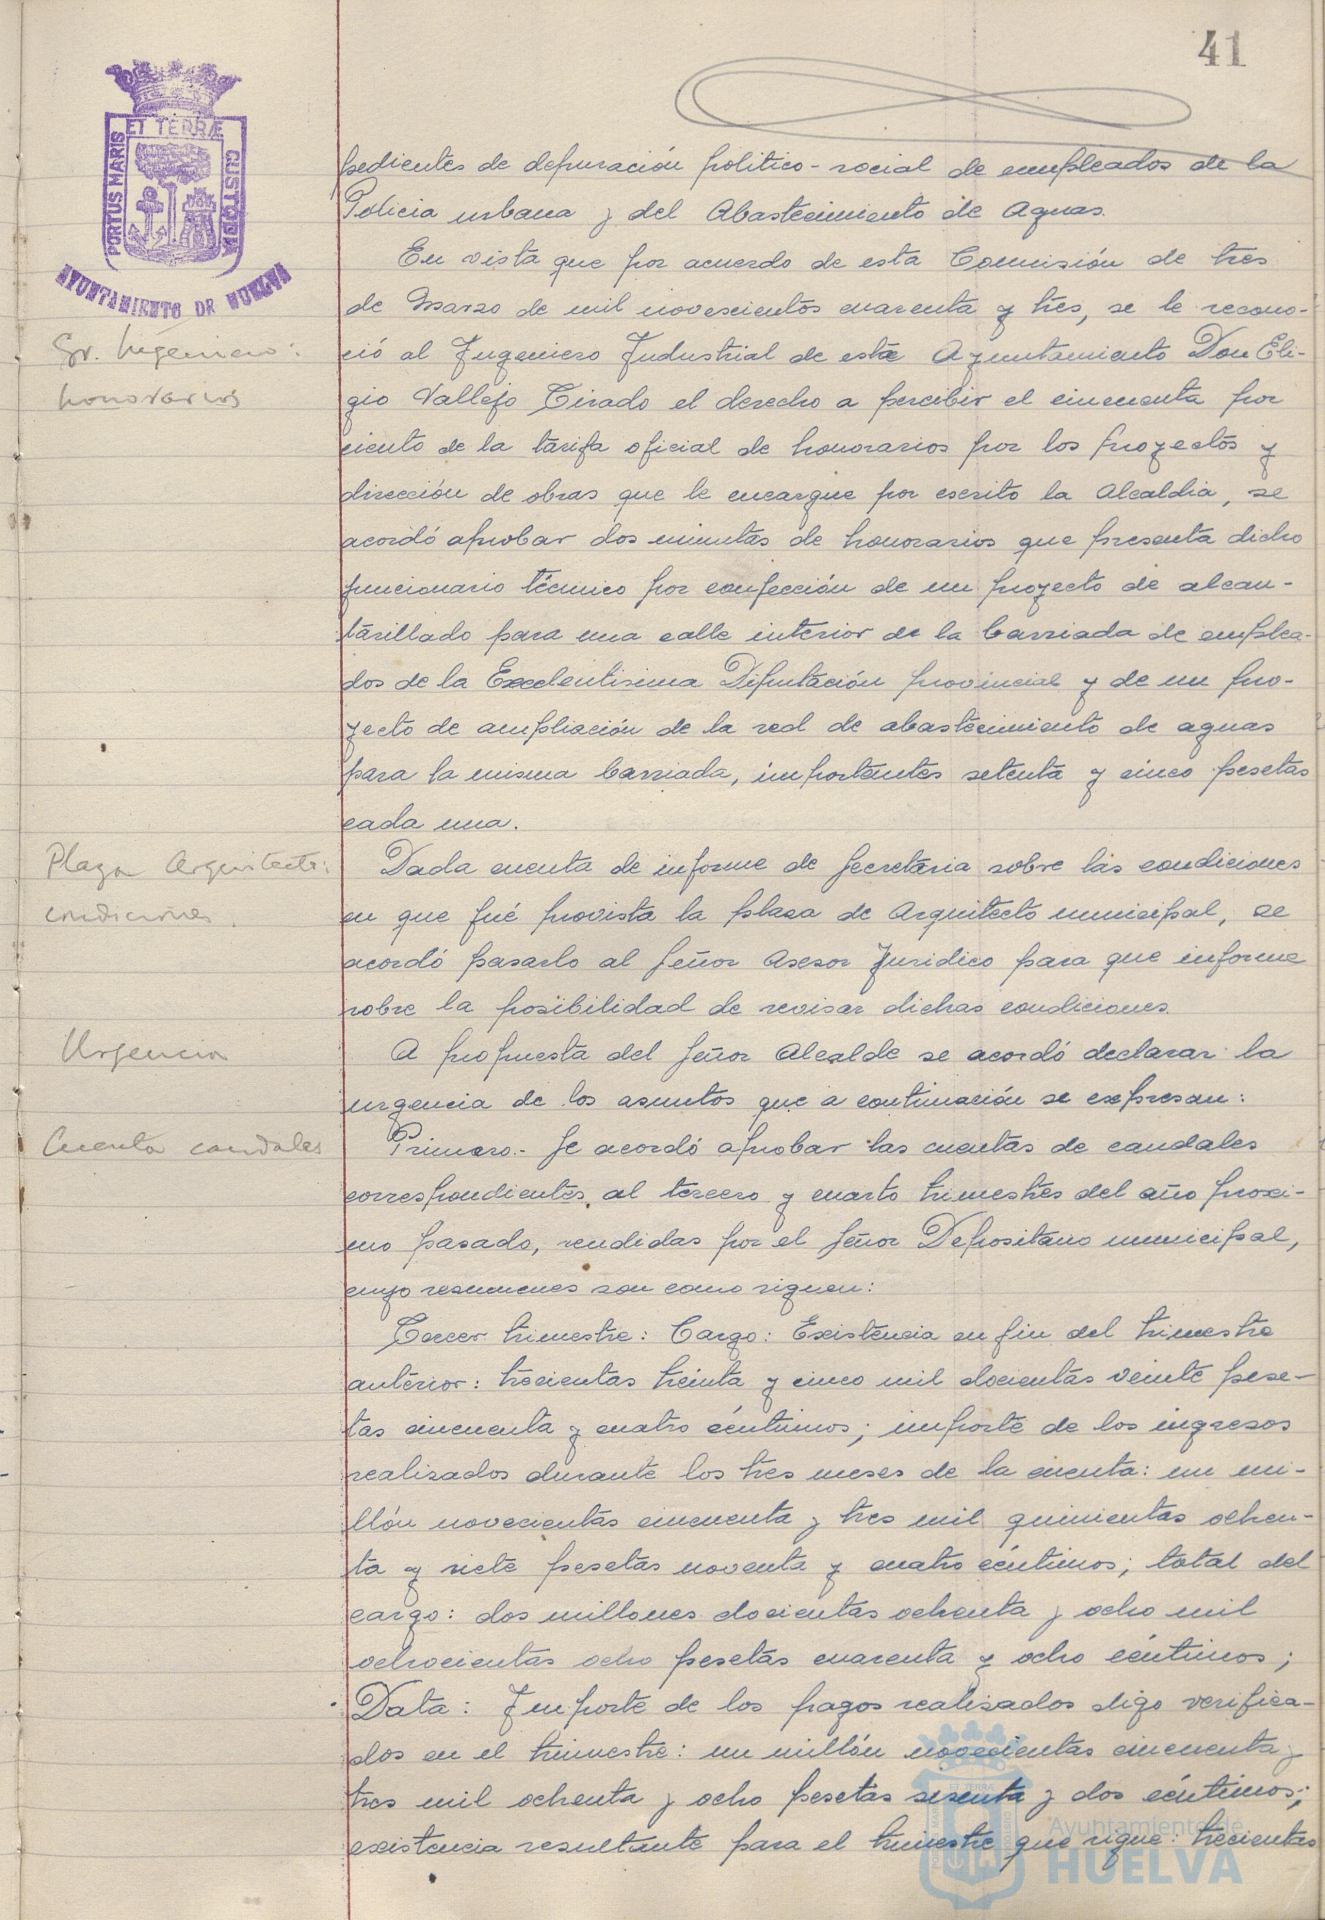 41
ET TERRÆ
PORTUS MARIS
CUSTODIA
AYUNTAMIENTO DE HUELVA
pedientes de depuración politico-social de empleados de la
Policia urbana y del Abastecimiento de Aguas.
En vista que por acuerdo de esta Comisión de tres
de Marzo de mil novescientos cuarenta y tres, se le recono-
Sr. Ingeniero:
ció al Ingeniero Industrial de este Ayuntamiento Don Eli-
honorarios
gio Vallejo Tirado el derecho a percibir el cincuenta por
ciento de la tarifa oficial de honorarios por los proyectos y
dirección de obras que le encargue por escrito la Alcaldia, se
acordó aprobar dos minutas de honorarios que presenta dicho
funcionario técnico por confección de un proyecto de alcan-
tarillado para una calle interior de la barriada de emplea-
dos de la Excelentisima Diputación provincial y de un pro-
yecto de ampliación de la red de abastecimiento de aguas
para la misma barriada, importantes setenta y cinco pesetas
cada una.
Plaza Arquitecto:
Dada cuenta de informe de Secretaria sobre las condiciones
condiciones
en que fué provista la plaza de Arquitecto municipal, se
acordó pasarlo al Señor Asesor Juridico para que informe
sobre la posibilidad de revisar dichas condiciones.
Urgencia
A propuesta del Señor Alcalde se acordó declarar la
urgencia de los asuntos que a continuación se expresan:
Cuenta caudales
Primero.- Se acordó aprobar las cuentas de caudales
correspondientes al tercero y cuarto trimestres del año proxi-
mo pasado, rendidas por el Señor Depositario municipal,
cuyo resumenes son como siguen:
Tercer trimestre: Cargo: Existencia en fin del trimestre
anterior: trecientas treinta y cinco mil docientas veinte pese-
tas cincuenta y cuatro céntimos; importe de los ingresos
realizados durante los tres meses de la cuenta: un mi-
llón novecientas cincuenta y tres mil quinientas ochen-
ta y siete pesetas noventa y cuatro céntimos; total del
cargo: dos millones docientas ochenta y ocho mil
ochocientas ocho pesetas cuarenta y ocho céntimos;
Data: Importe de los pagos realizados digo verifica-
dos en el trimestre: un millón novecientas cincuenta y
tres mil ochenta y ocho pesetas sesenta y dos céntimos;
existencia resultante para el trimestre que sigue: trecientas
Ayuntamiento de
HUELVA